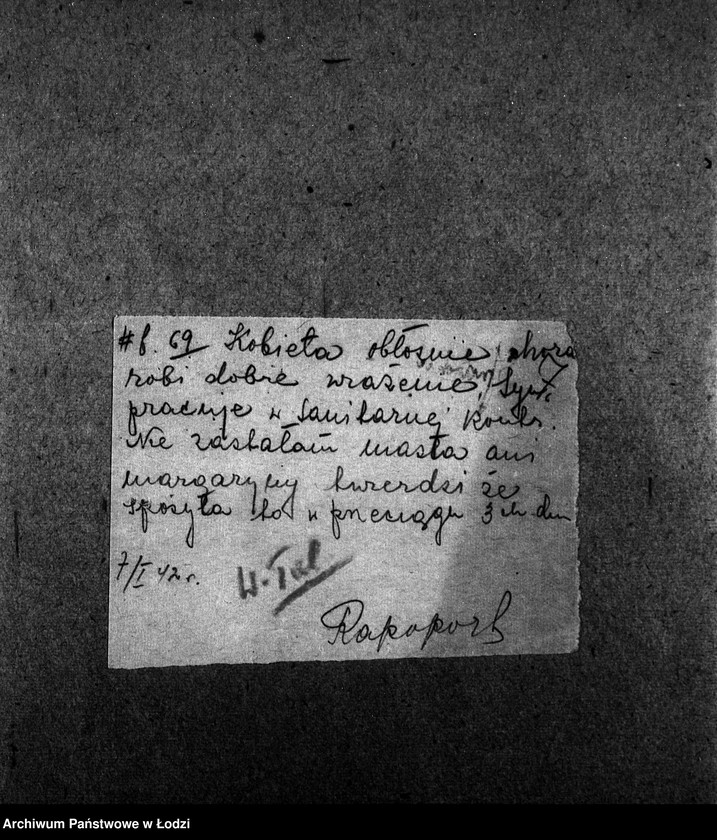 #f. 69 Kobieta obłożnie chora
robi dobre wrażenie, Syn
pracuje w Sanitarnej Kontr.
Nie zastałam masła ani
margaryny twierdzi że
spożyła to w przeciągu 3ch dni
7/I 42 r.
Rapoport
Archiwum Państwowe w Łodzi